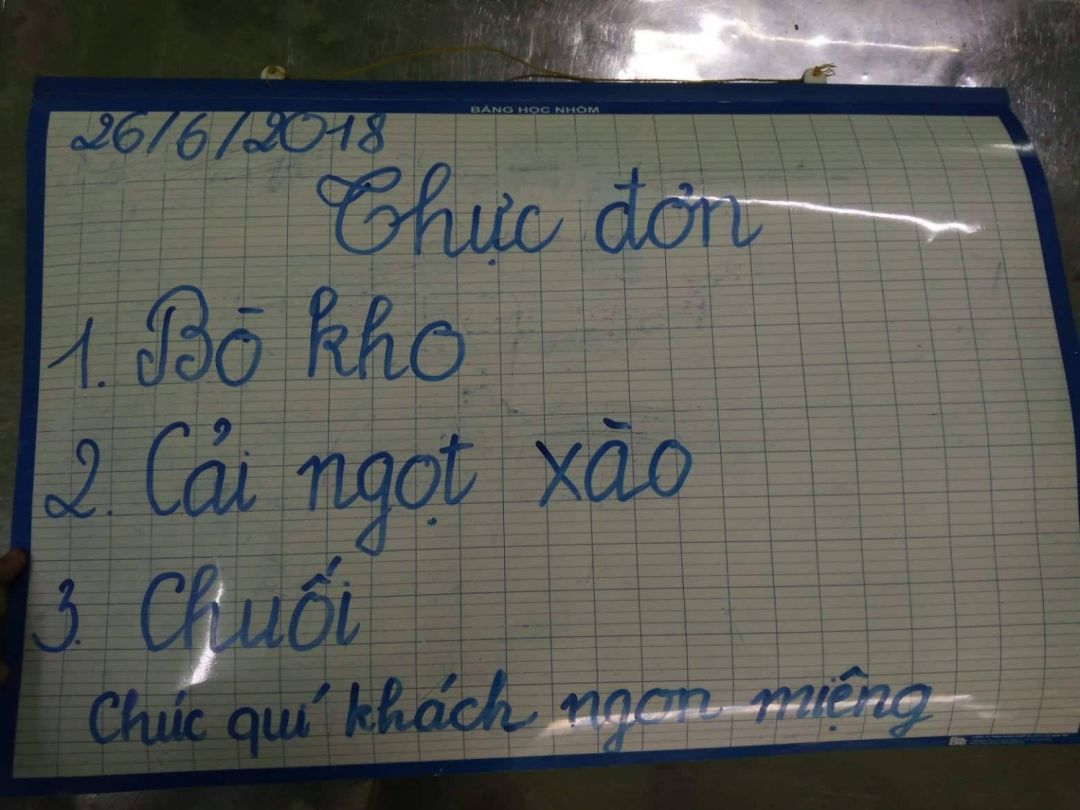 BẢNG HỌC NHÓM
26/6/2018
Thực đơn
1. Bò kho
2. Cải ngọt xào
3. Chuối
Chúc quí khách ngon miệng